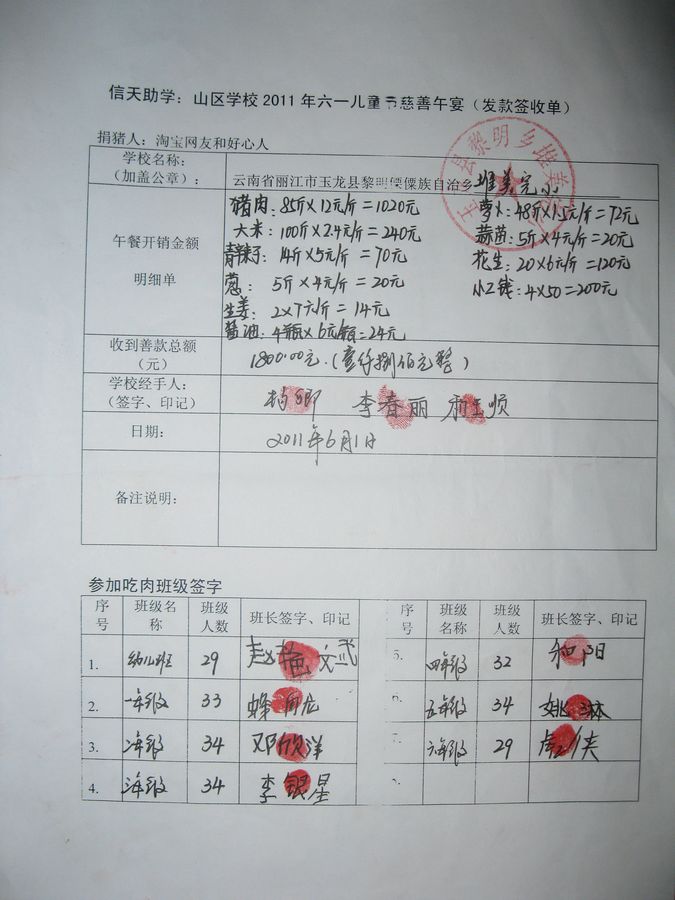 信天助学：山区学校2011年六一儿童节慈善午宴（发款签收单）
捐猪人：淘宝网友和好心人
学校名称：
（加盖公章）：
云南省丽江市玉龙县黎明傈僳族自治乡堆美完小
午餐开销金额
明细单
猪肉：85斤×12元/斤=1020元
大米：100斤×2.4元/斤=240元
青辣子：14斤×5元/斤=70元
葱：5斤×4元/斤=20元
生姜：2×7元/斤=14元
酱油：4瓶×6元/瓶=24元
萝卜：48斤×1.5元/斤=72元
蒜苗：5斤×4元/斤=20元
花生：20×6元/斤=120元
小工钱：4×50=200元
收到善款总额
（元）
1800.00元（壹仟捌佰元整）
学校经手人：
（签字、印记）
李春丽
日期：
2011年6月1日
备注说明：
参加吃肉班级签字
序号 班级名称 班级人数 班长签字、印记
1. 幼儿班 29 赵艳 文武
2. 一年级 33
3. 二年级 34 邓欣洋
4. 三年级 34 李银星
序号 班级名称 班级人数 班长签字、印记
5. 四年级 32 和阳
6. 五年级 34 姚琳
7. 六年级 29